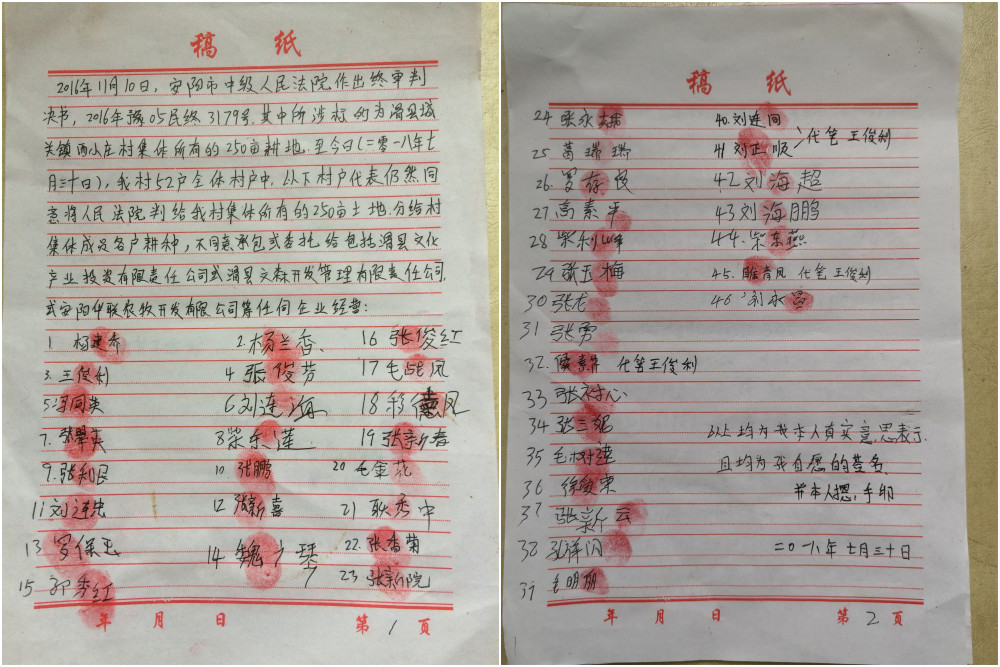 稿 纸
2016年11月10日，安阳市中级人民法院作出终审判
决书，2016年豫05民终3179号，其中所涉标的为滑县城
关镇西小庄村集体所有的250亩耕地，至今日（二零一八年七
月三十日），我村52户全体村户中，以下村户代表仍然同
意将人民法院判给我村集体所有的250亩土地，分给村
集体成员各户耕种，不同意承包或委托给包括滑县文化
产业投资有限责任公司或滑县文森开发管理有限责任公司，
或安阳华联农牧开发有限公司等任何企业经营：
1 杨建乔 2. 杨兰香 16 张俊红
3. 王俊利 4 张俊芳 17 毛 凤
5. 冯同英 6 刘连 18 德凤
7. 英 8 柴东莲 19 张新春
9. 张利民 10. 张鹏 20 毛金花
11 刘连忠 12 张新喜 21 耿秀中
13 罗保玉 14 魏 琴 22. 张香菊
15 红 23 张新院
年 月 日 第 1 页
稿 纸
24 张永 40. 刘连同
25 葛瑞瑞 41 刘正顺 代笔 王俊利
26. 罗存良 42 刘海超
27 高素平 43 刘海鹏
28 柴利峰 44. 柴东燕
29 张玉梅 45. 青凤 代笔 王俊利
30 张龙 46 刘永
31 张勇
32. 代笔王俊利
33 张
34 张三 以上均为我本人真实意思表示.
35 毛树建 且均为我自愿的签名
36 徐 东 并本人摁手印
37 张新云
38 二〇一八年七月三十日
39 毛明朋
年 月 日 第 2 页